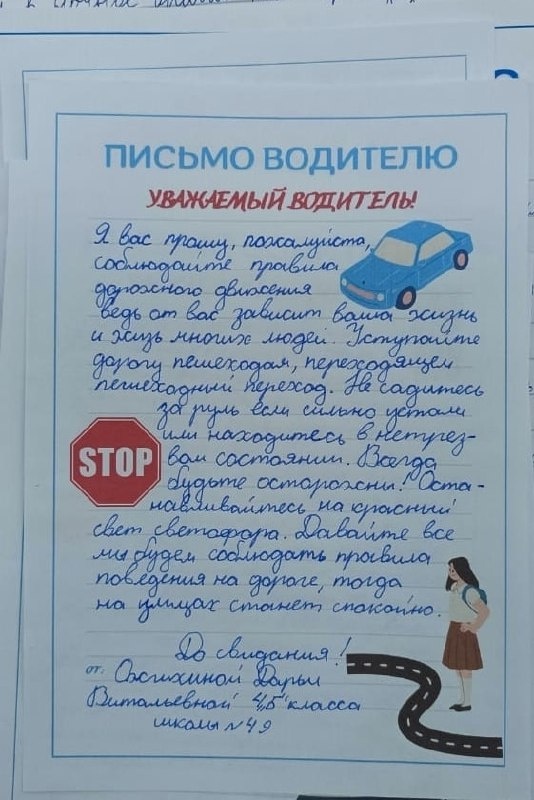 ПИСЬМО ВОДИТЕЛЮ
УВАЖАЕМЫЙ ВОДИТЕЛЬ!
Я вас прошу, пожалуйста,
соблюдайте правила
дорожного движения
ведь от вас зависит ваша жизнь
и жизь многих людей. Уступайте
дорогу пешеходам, переходящем
пешеходный переход. Не садитесь
за руль если сильно устали
или находитесь в нетрез-
вом состоянии. Всегда
будьте осторожны! Оста-
навливайтесь на красный
свет светофора. Давайте все
мы будем соблюдать правила
поведения на дороге, тогда
на улицах станет спокойно.
STOP
До свидания!
от: Дарьи
Витальевной 4,,Б" класса
школы №49